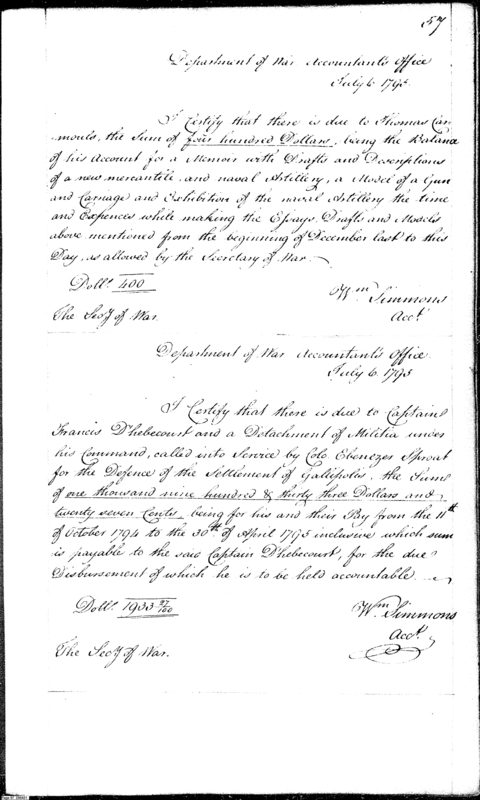 57
Department of War Accountant's Office
July 6 1795
I Certify that there is due to Thomas Car
mouls, the Sum of four hundred Dollars, being the Balance
of his Account for a Memoir with Drafts and Descriptions
of a new mercantile and naval Artillery, a Model of a Gun
and Carriage and Exhibition of the naval Artillery the time
and Expences while making the Essays, Drafts and Models
above mentioned from the beginning of December last to this
Day, as allowed by the Secretary of War.
Dolls. 400
Wm Simmons
Acct.
The Secy of War.
Department of War Accountant's Office
July 6. 1795
I Certify that there is due to Captain
Francis D'hebecourt and a Detachment of Militia under
his Command, called into Service by Colo. Ebenezer Sproat
for the Defence of the Settlement of Gallipolis, the Sum
of one thousand nine hundred & thirty three Dollars and
twenty seven Cents, being for his and their Pay from the 11th
of October 1794 to the 30th of April 1795 inclusive which sum
is payable to the said Captain D'hebecourt, for the due
Disbursement of which he is to be held accountable
Dolls. 1933 27/100
Wm Simmons
Acct.
The Secy of War.